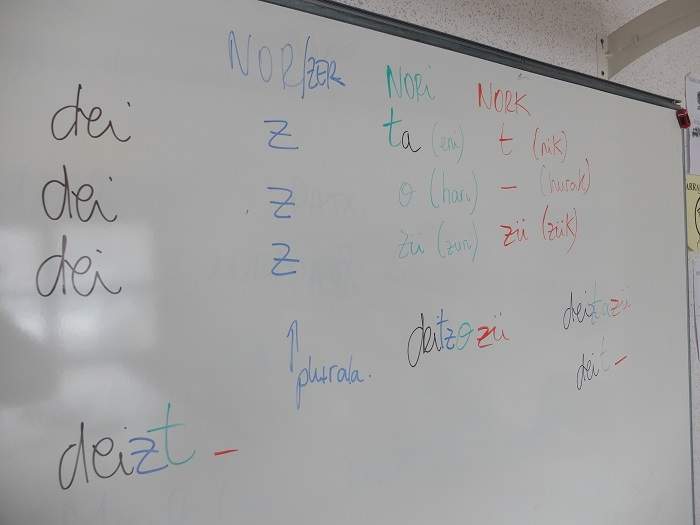 NOR/ZER NORi NORK
dei z ta (eni) t (nik)
dei z o (hari) - (hurak)
dei z zü (zuri) zü (zük)
↑ plurala. deitzozü deiztazü
deit -
deizt -